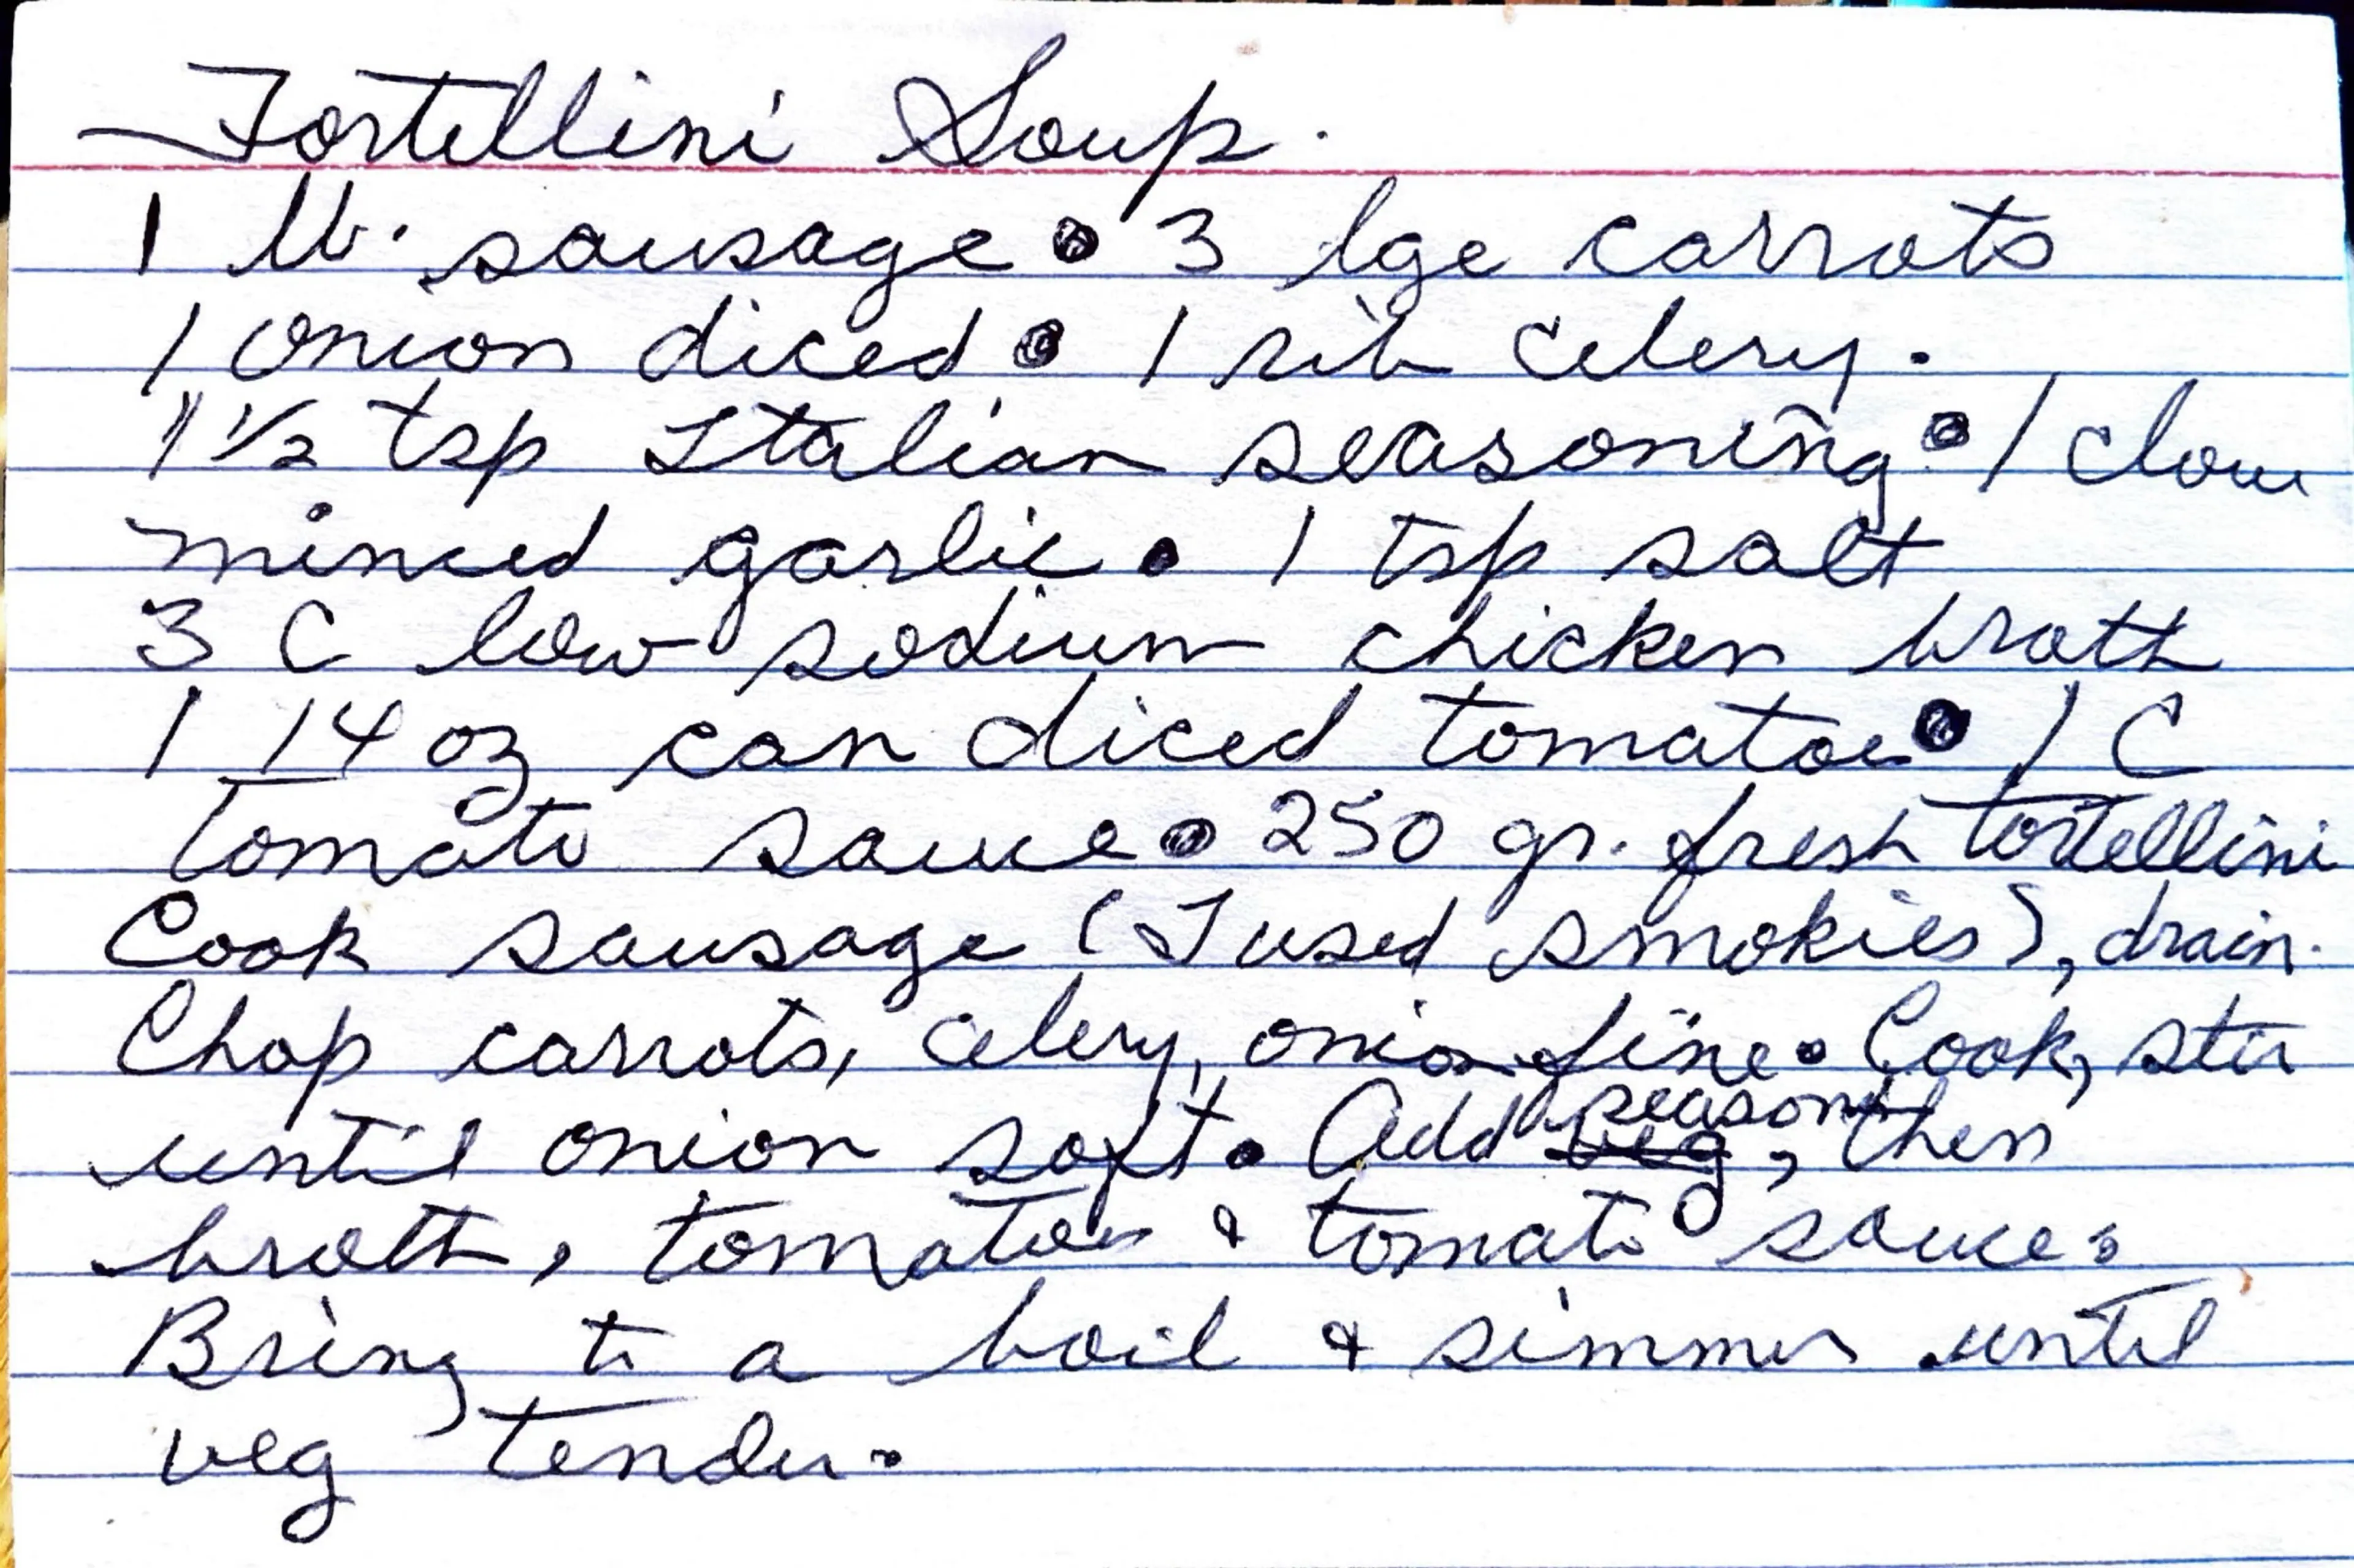 Tortellini Soup.
1 lb. sausage • 3 lge carrots
1 onion diced • 1 rib celery.
1 1/2 tsp Italian seasoning • 1 clove
minced garlic • 1 tsp salt
3 C low sodium chicken broth
1 14 oz can diced tomatoes • 1 C
Tomato sauce • 250 gr. fresh tortellini
Cook sausage (I used smokies), drain.
Chop carrots, celery, onion fine • Cook, stir
until onion soft • Add seasoning, then
broth, tomatoes & tomato sauce.
Bring to a boil & simmer until
veg tender.